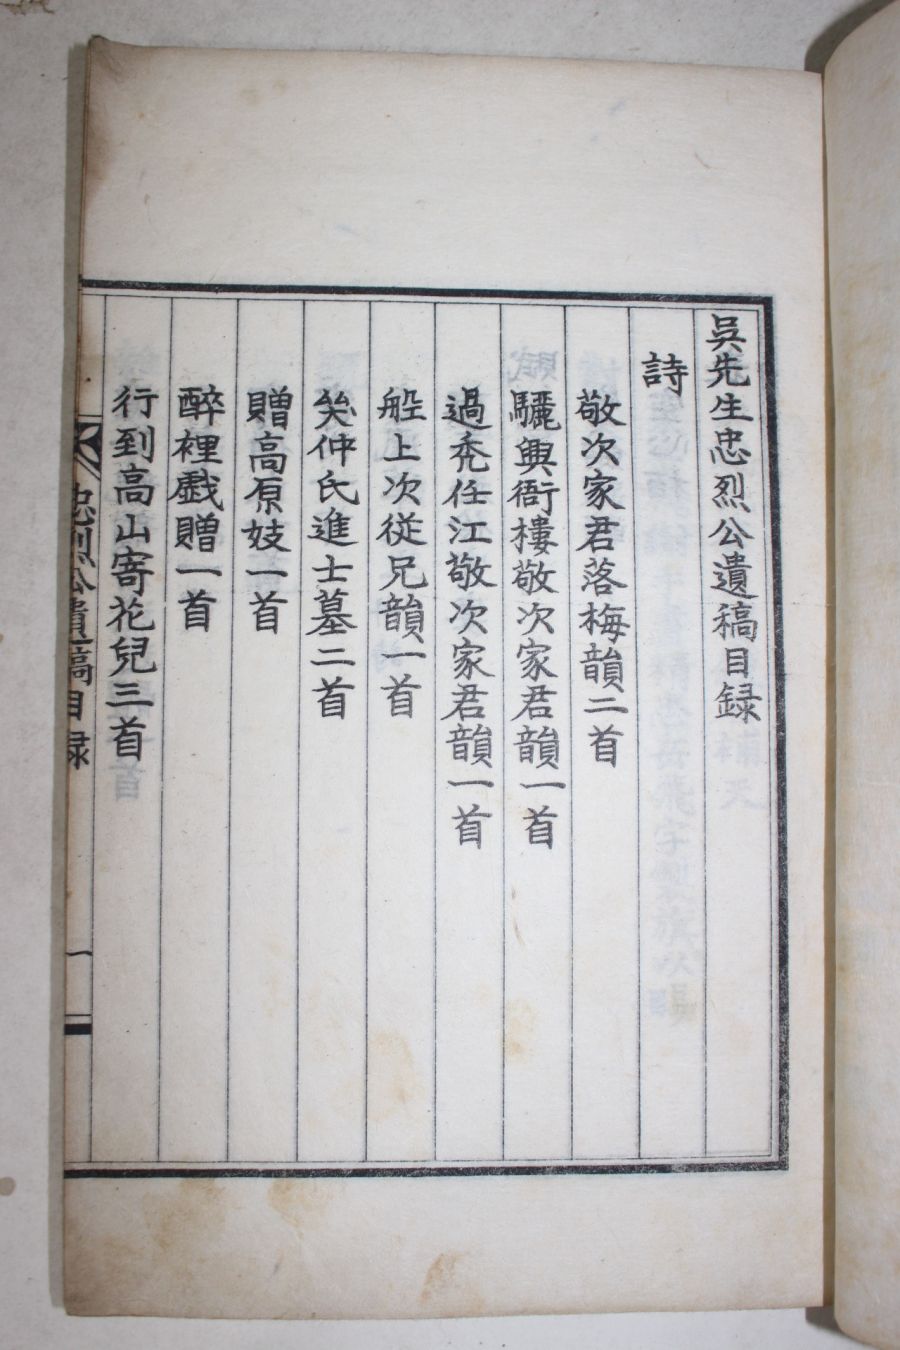 吳先生忠烈公遺稿目録
詩
敬次家君落梅韻二首
驪興衙樓敬次家君韻一首
過禿任江敬次家君韻一首
船上次従兄韻一首
哭仲氏進士墓二首
贈高原妓一首
醉裡戲贈一首
行到高山寄花兒三首
忠烈公遺稿目録
一